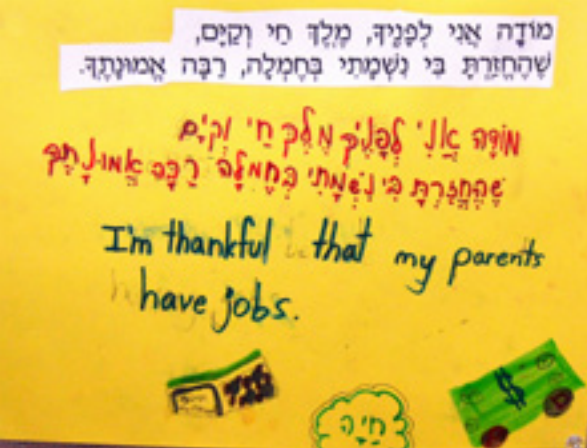 מוֹדָה אֲנִי לְפָנֶיךָ, מֶלֶךְ חַי וְקַיָּם,
שֶׁהֶחֱזַרְתָּ בִּי נִשְׁמָתִי בְּחֶמְלָה, רַבָּה אֱמוּנָתֶךָ.
מוֹדָה אֲנִי לְפָנֶיךָ מֶלֶךְ חַי וְקַיָּם
שֶׁהֶחֱזַרְתָּ בִּי נִשְׁמָתִי בְּחֶמְלָה רַבָּה אֱמוּנָתֶךָ
I'm thankful that my parents
have jobs.
$
חַיָּה